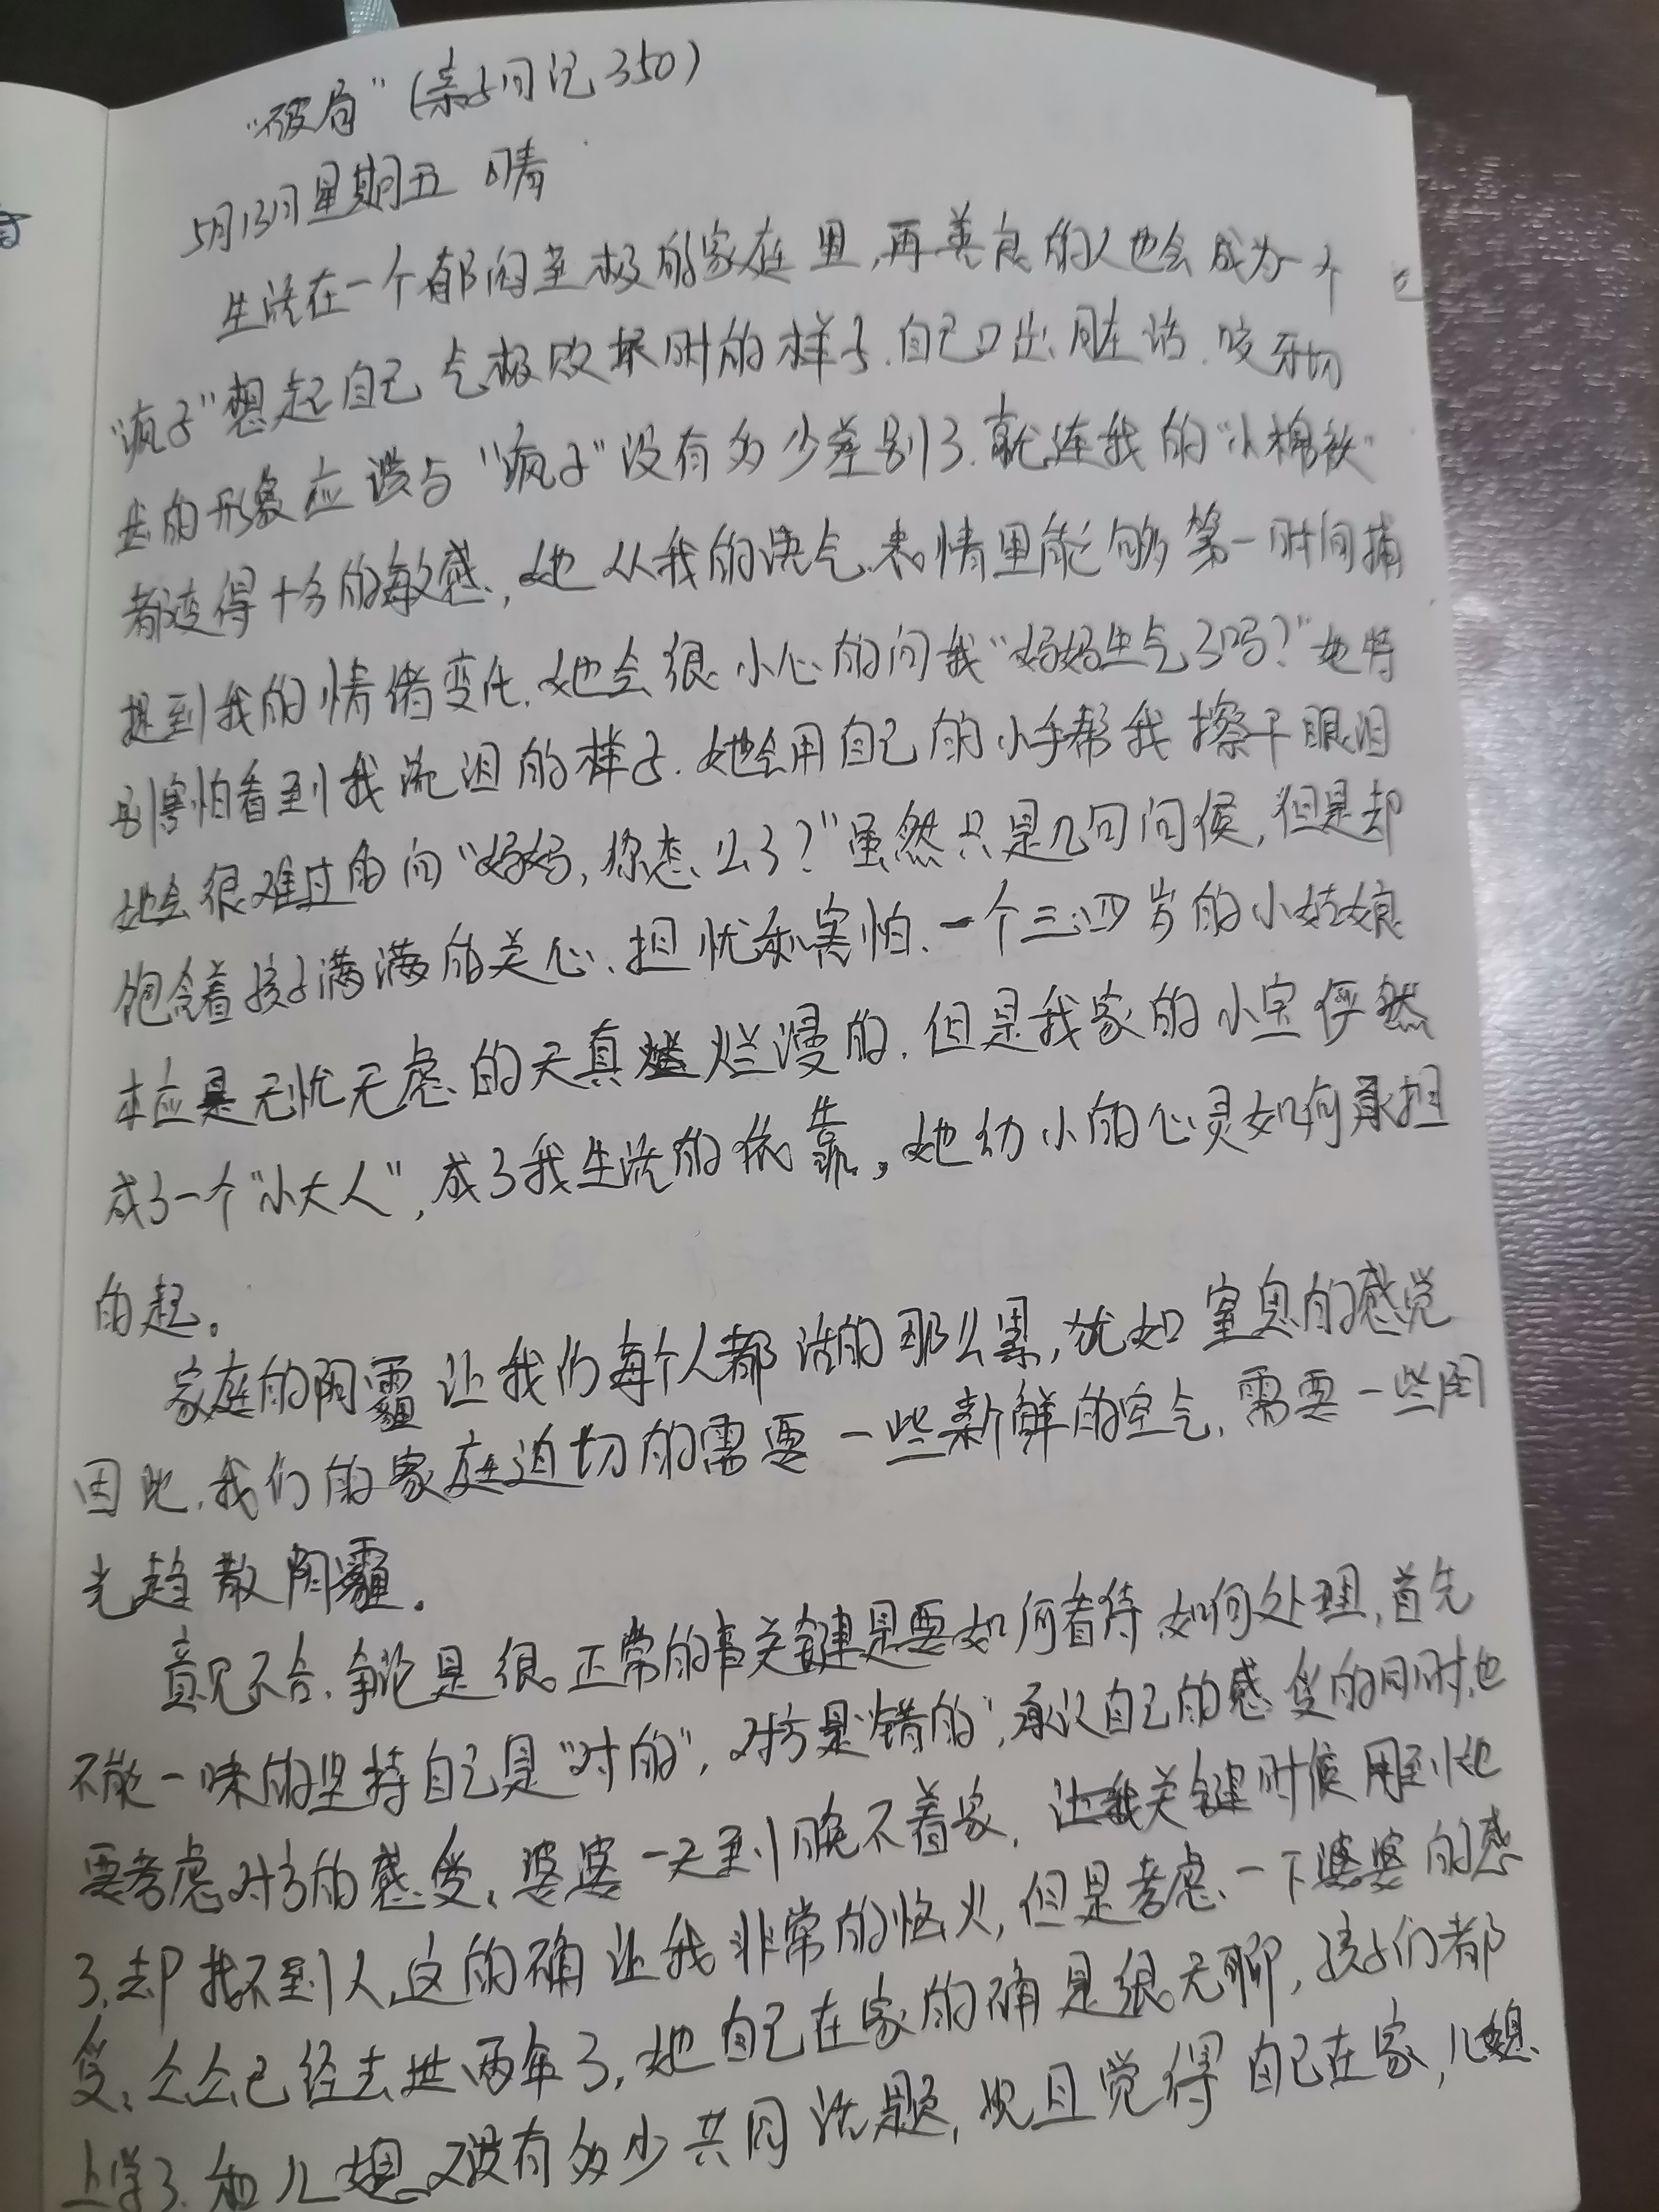 “破局”(亲子日记350)
5月13日星期五 晴
生活在一个郁闷至极的家庭里,再善良的人也会成为一个
“疯子”想起自己气极败坏时的样子.自己口出脏话.咬牙切
齿的形象应该与“疯子”没有多少差别了.就连我的“小棉袄”
都变得十分的敏感,她从我的语气.表情里能够第一时间捕
捉到我的情绪变化.她会很小心的问我“妈妈生气了吗?”她特
别害怕看到我流泪的样子.她会用自己的小手帮我擦干眼泪
她会很难过的问“妈妈,你怎么了?”虽然只是几句问候,但是却
饱含着孩子满满的关心、担忧和害怕.一个三、四岁的小姑娘
本应是无忧无虑的天真烂漫的.但是我家的小宝俨然
成了一个“小大人”,成了我生活的依靠,她幼小的心灵如何承担
的起。
家庭的阴霾让我们每个人都活的那么累,犹如窒息的感觉
因此.我们的家庭迫切的需要一些新鲜的空气,需要一些阳
光趋散阴霾.
意见不合.争论是很正常的事关键是要如何看待.如何处理,首先
不能一味的坚持自己是“对的”,对方是“错的”,承认自己的感受的同时,也
要考虑对方的感受.婆婆一天到晚不着家,让我关键时候用到她
了,却找不到人,这的确让我非常的恼火,但是考虑一下婆婆的感
受,公公已经去世两年了,她自己在家的确是很无聊,孩子们都
上学了.和儿媳又没有多少共同话题,况且觉得自己在家,儿媳